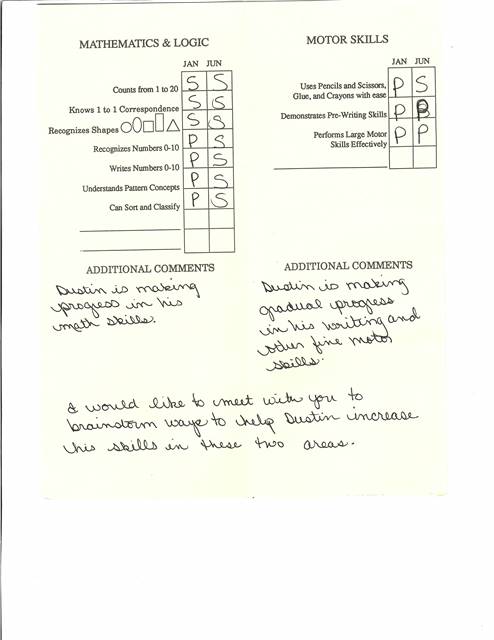 MATHEMATICS & LOGIC
JAN JUN
Counts from 1 to 20 S S
Knows 1 to 1 Correspondence S S
Recognizes Shapes S S
Recognizes Numbers 0-10 P S
Writes Numbers 0-10 P S
Understands Pattern Concepts P S
Can Sort and Classify P S
ADDITIONAL COMMENTS
Dustin is making
progress in his
math skills.
MOTOR SKILLS
JAN JUN
Uses Pencils and Scissors,
Glue, and Crayons with ease P S
Demonstrates Pre-Writing Skills P P
Performs Large Motor
Skills Effectively P P
ADDITIONAL COMMENTS
Dustin is making
gradual progress
in his writing and
other fine motor
skills.
I would like to meet with you to
brainstorm ways to help Dustin increase
his skills in these two areas.